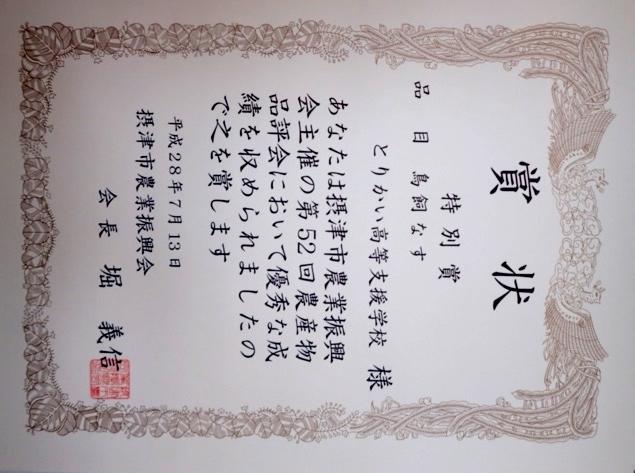 賞状
特別賞
品目 鳥飼なす
とりかい高等支援学校 様
あなたは摂津市農業振興
会主催の第52回農産物
品評会において優秀な成
績を収められましたの
で之を賞します
平成28年7月13日
摂津市農業振興会
会長 堀 義信